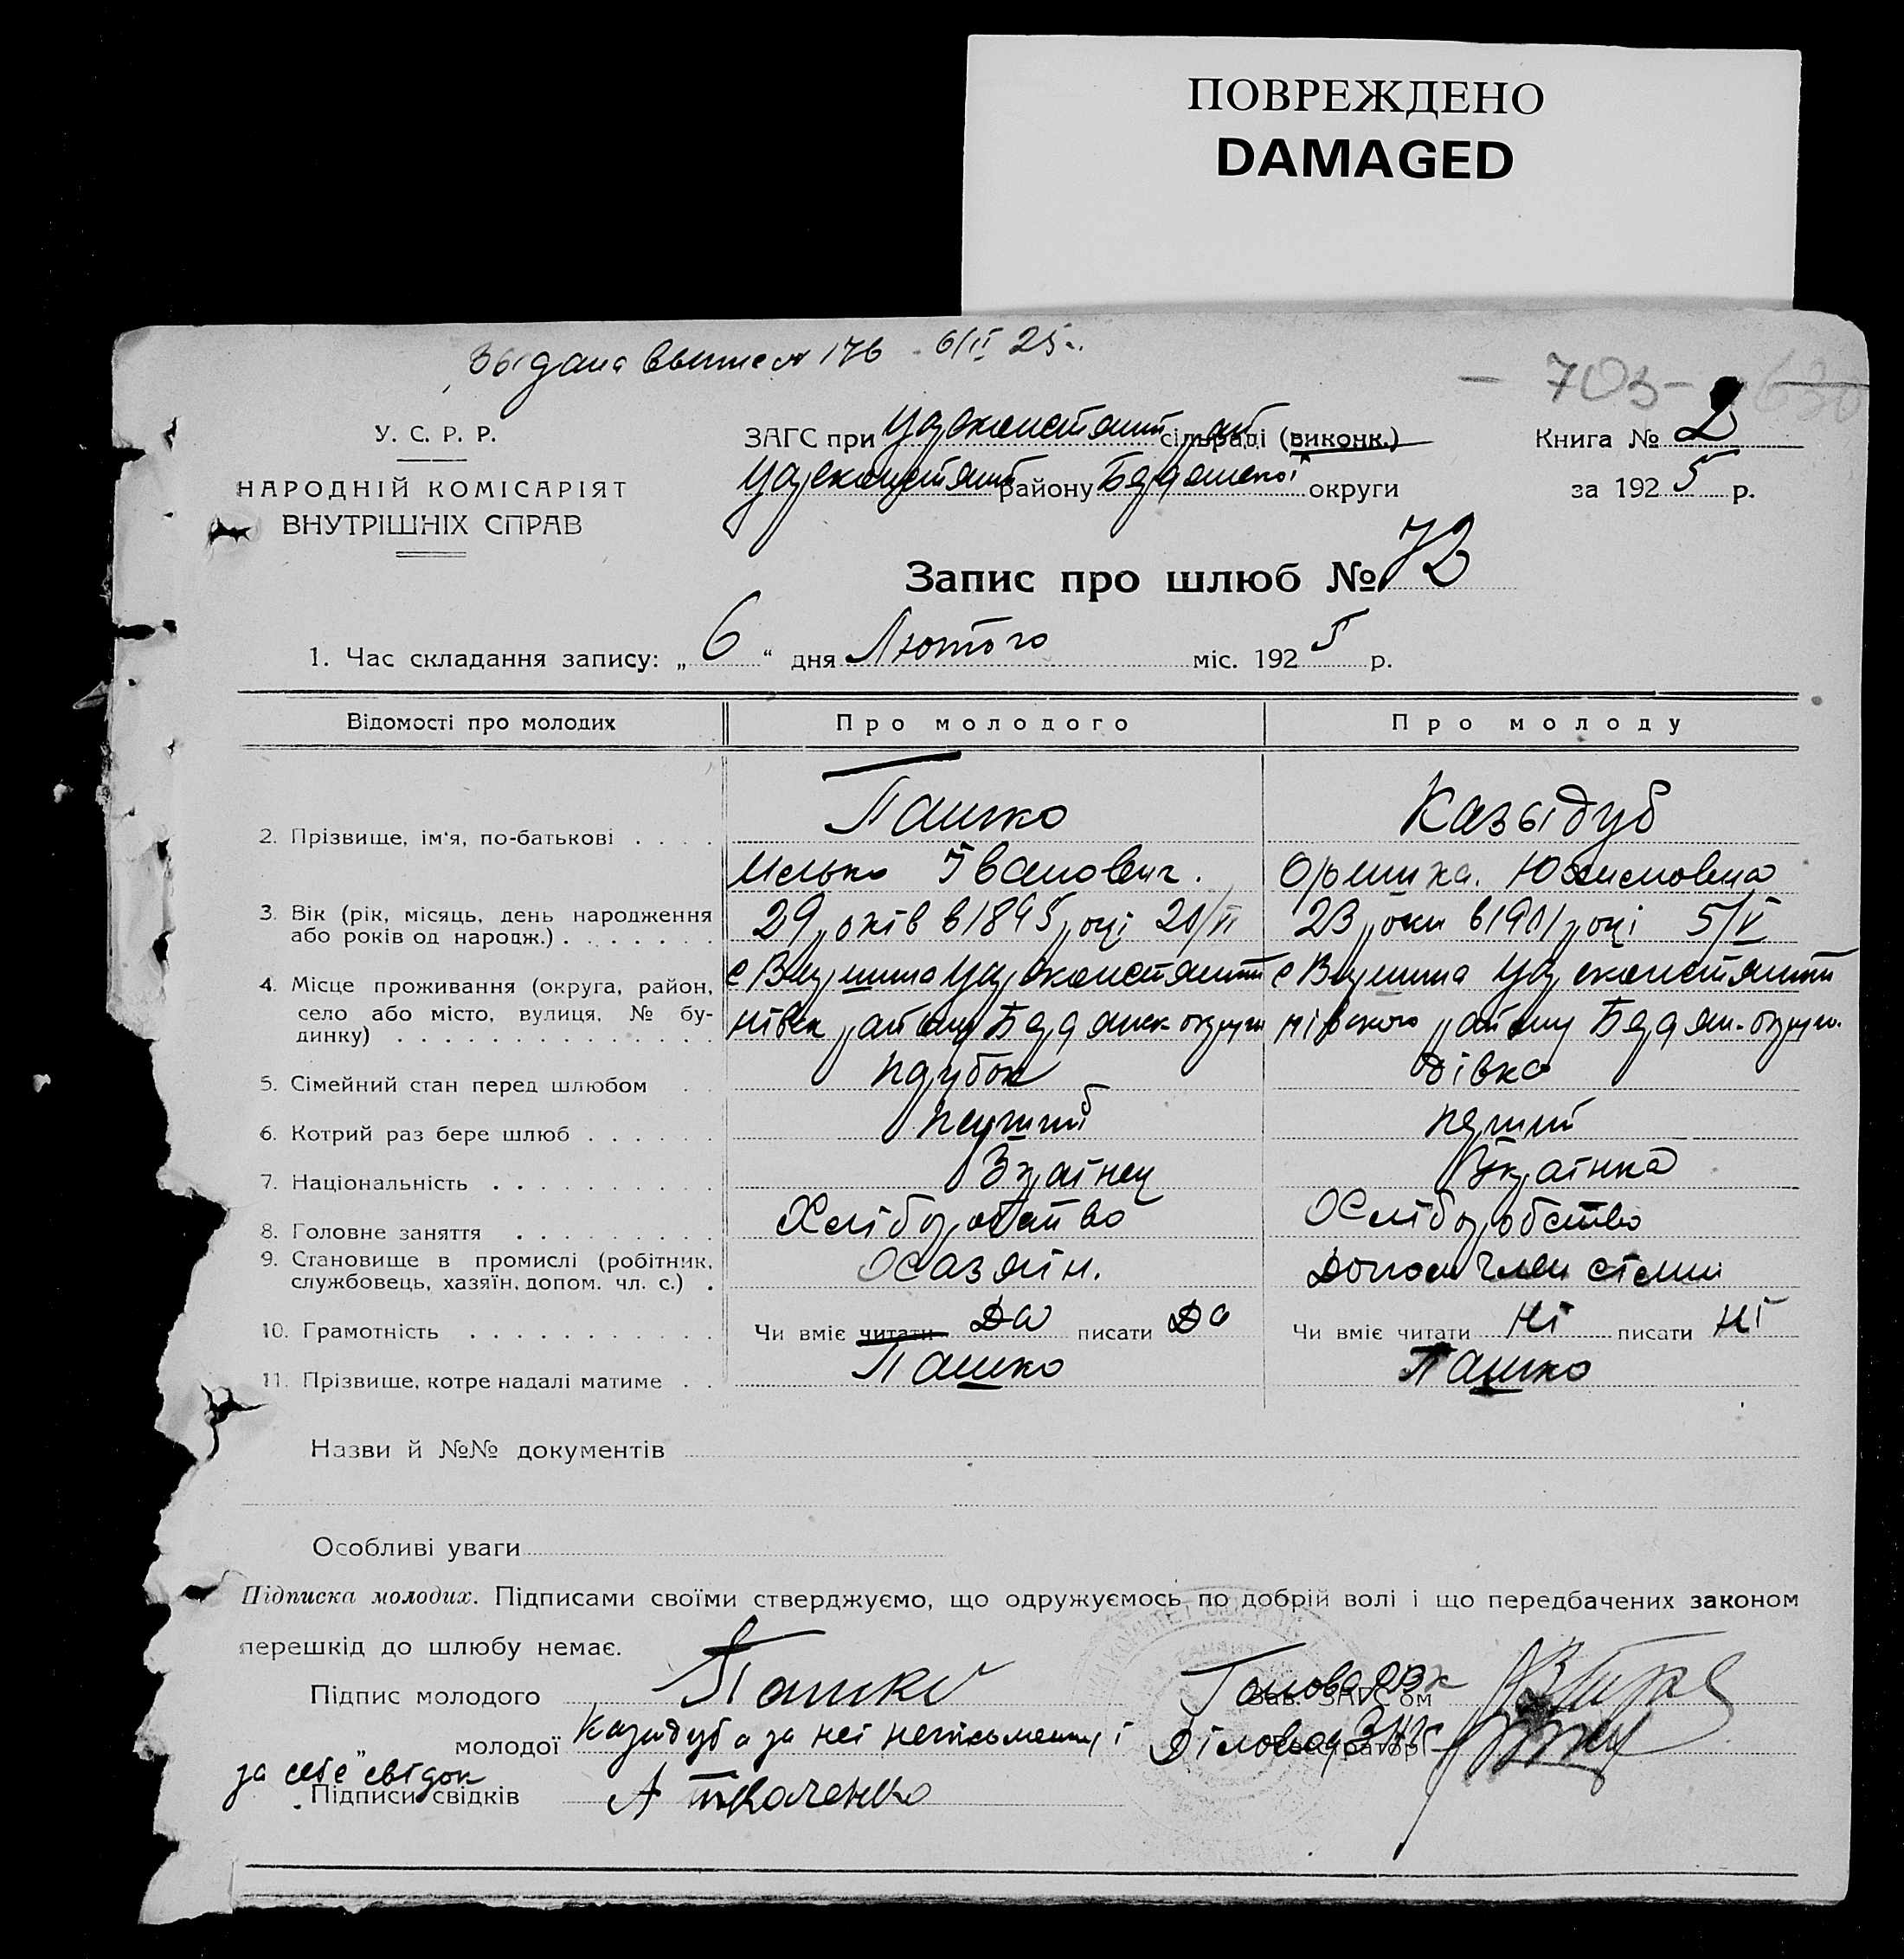 ПОВРЕЖДЕНО
DAMAGED
176 6/II 25
703
У. С. Р. Р.
НАРОДНІЙ КОМІСАРІЯТ
ВНУТРІШНІХ СПРАВ
ЗАГС при Цареконстант рай сільраді (виконк.)
Книга № 2
району округи
за 1925 р.
Запис про шлюб № 72
1. Час складання запису: „ 6 “ дня Лютого міс. 1925 р.
Відомості про молодих Про молодого Про молоду
2. Прізвище, ім'я, по-батькові . . . . Пашко Казыдуб
Іванович. Оришка.
3. Вік (рік, місяць, день народження
або років од народж.) . . . . . . . 29 років в 1895 році 20/VI 23 роки в 1901 році 5/V
4. Місце проживання (округа, район,
село або місто, вулиця, № бу-
динку) . . . . . . . . . . . . . . .
5. Сімейний стан перед шлюбом . . Парубок дівка
6. Котрий раз бере шлюб . . . . . . перший
7. Національність . . . . . . . . . Вкраінец Вкраінка
8. Головне заняття . . . . . . . . . Хліборобство Хліборобство
9. Становище в промислі (робітник,
службовець, хазяїн, допом. чл. с.) . Хазяін. Допом член сіемии
10. Грамотність . . . . . . . . . . . Чи вміє читати Да писати Да Чи вміє читати Ні писати Ні
11. Прізвище, котре надалі матиме . . Пашко Пашко
Назви й №№ документів
Особливі уваги
Підписка молодих. Підписами своїми стверджуємо, що одружуємось по добрій волі і що передбачених законом
перешкід до шлюбу немає.
Підпис молодого Пашко Голова Зав. ЗАГС'ом
„ молодої Казидуб а за неі неписьменну і Діловод Реєстратор
за себе свідок
Підписи свідків А Ткаченко